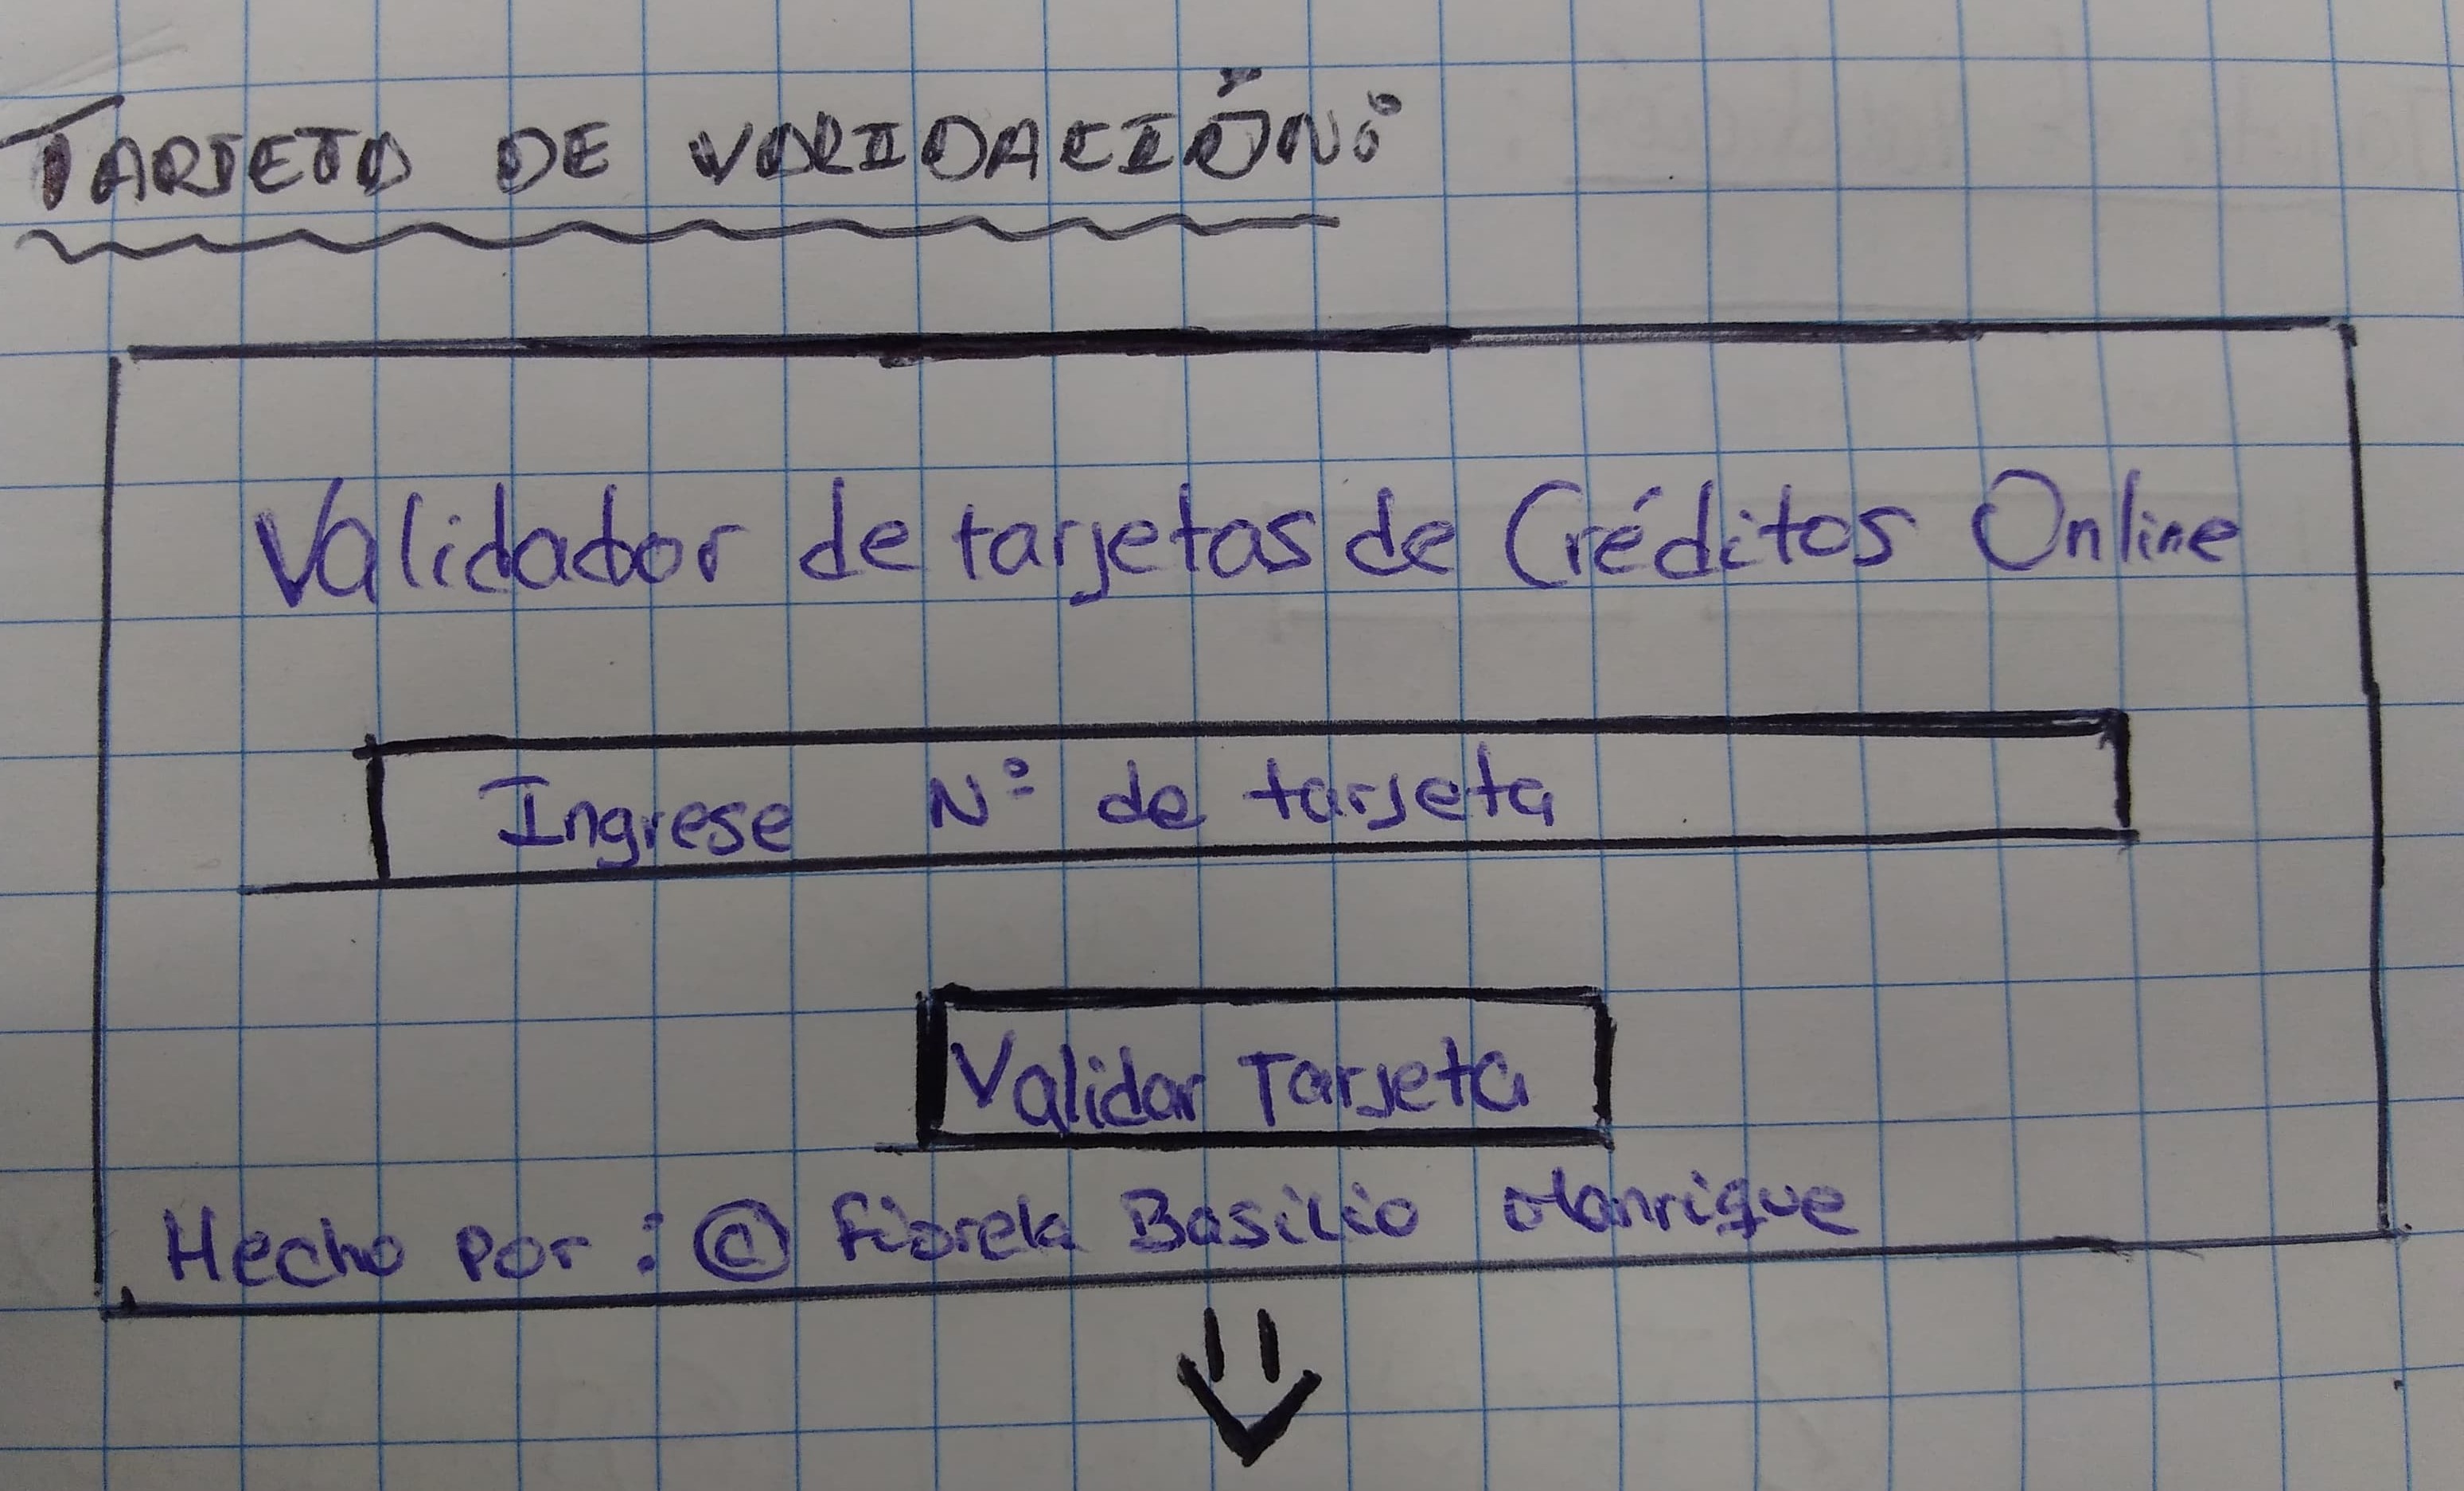 TARJETA DE VALIDACIÓN:
Validador de tarjetas de Créditos Online
Ingrese N° de tarjeta
Validar Tarjeta
Hecho por : © Fiorela Basilio Manrique